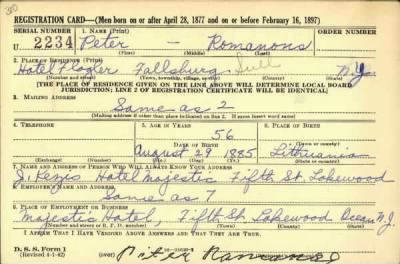 REGISTRATION CARD—(Men born on or after April 28, 1877 and on or before February 16, 1897)
SERIAL NUMBER 1. NAME (Print) ORDER NUMBER
U 2234 Peter — Romanons
(First) (Middle) (Last)
2. PLACE OF RESIDENCE (Print)
Hotel Flagler Fallsburg Sull N.Y.
(Number and street) (Town, township, village, or city) (County) (State)
[THE PLACE OF RESIDENCE GIVEN ON THE LINE ABOVE WILL DETERMINE LOCAL BOARD
JURISDICTION; LINE 2 OF REGISTRATION CERTIFICATE WILL BE IDENTICAL]
3. MAILING ADDRESS
Same as 2
[Mailing address if other than place indicated on line 2. If same insert word same]
4. TELEPHONE 5. AGE IN YEARS 6. PLACE OF BIRTH
56
DATE OF BIRTH (Town or county)
August 29 1885 Lithuania
(Exchange) (Number) (Mo.) (Day) (Yr.) (State or country)
7. NAME AND ADDRESS OF PERSON WHO WILL ALWAYS KNOW YOUR ADDRESS
Hotel Majestic Fifth St. Lakewood
8. EMPLOYER'S NAME AND ADDRESS
Same as 7
9. PLACE OF EMPLOYMENT OR BUSINESS
Majestic Hotel, Fifth St. Lakewood Ocean N.J.
(Number and street or R. F. D. number) (Town) (County) (State)
I AFFIRM THAT I HAVE VERIFIED ABOVE ANSWERS AND THAT THEY ARE TRUE.
D. S. S. Form 1
(Revised 4-1-42) (over) Piter